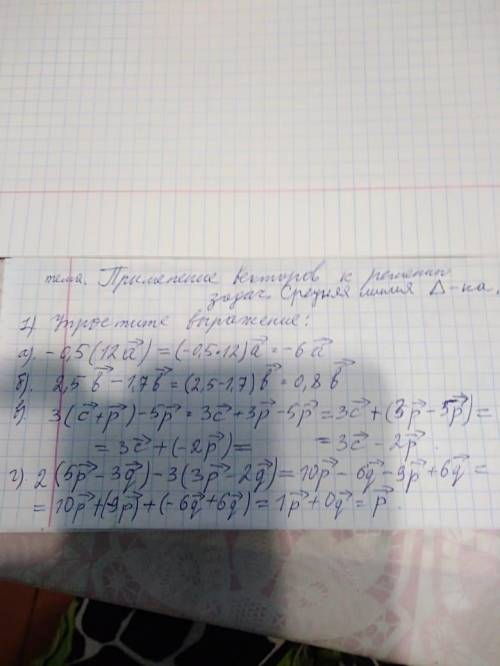 тема. Применение векторов к решению
задач. Средняя линия Δ-ка.
1) Упростите выражение:
а). -0,5(12a⃗) = (-0,5·12)a⃗ = -6a⃗
б). 2,5b⃗ - 1,7b⃗ = (2,5-1,7)b⃗ = 0,8b⃗
в). 3(c⃗+p⃗)-5p⃗ = 3c⃗+3p⃗-5p⃗ = 3c⃗+(3p⃗-5p⃗) =
= 3c⃗+(-2p⃗) = = 3c⃗-2p⃗.
г). 2(5p⃗-3q⃗)-3(3p⃗-2q⃗) = 10p⃗-6q⃗-9p⃗+6q⃗ =
= 10p⃗+(-9p⃗)+(-6q⃗+6q⃗) = 1p⃗+0q⃗ = p⃗.